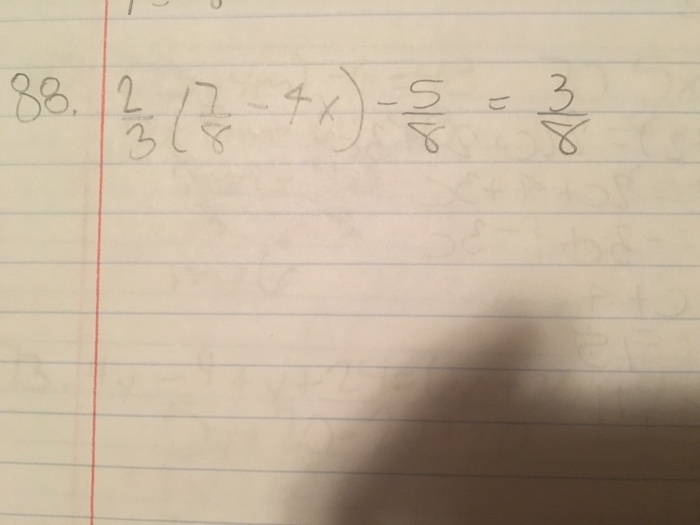 88. 2/3 (7/8 - 4x) - 5/8 = 3/8